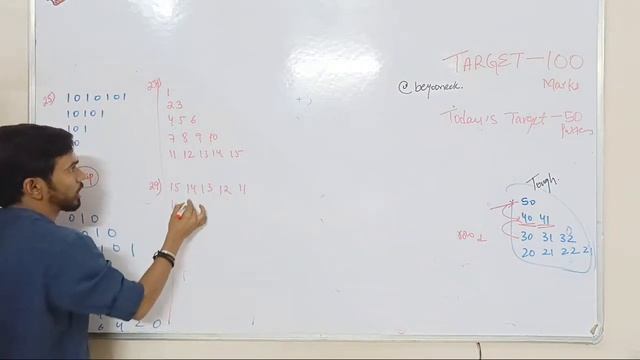 25) 1 0 1 0 1 0 1
1 0 1 0 1
1 0 1
0
0 1 0
0 1 0
1 0 1
6 4 2 0
28)
1
2 3
4 5 6
7 8 9 10
11 12 13 14 15
29) 15 14 13 12 11
TARGET-100
Marks
@beyoneek.
Today's Target-50
Tough
50
40 41
30 31 32
20 21 22 21